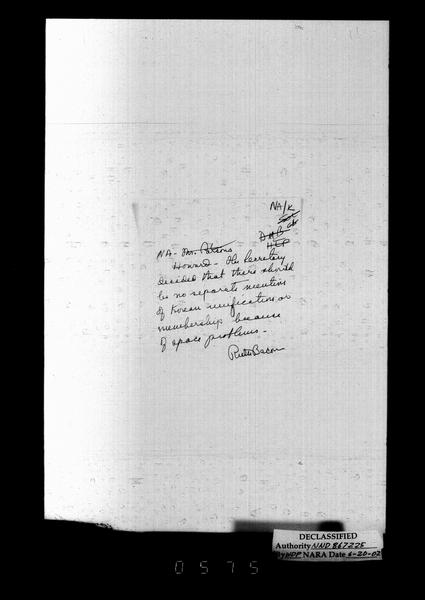 NA/K
DAB
HLP
NA - Mr. Parsons
Howard - The Secretary
decided that there should
be no separate mention
of Korean unification or
membership because
of space problems.
Ruth Bacon
DECLASSIFIED
Authority NND 867225
By WDP NARA Date 6-20-02
0575